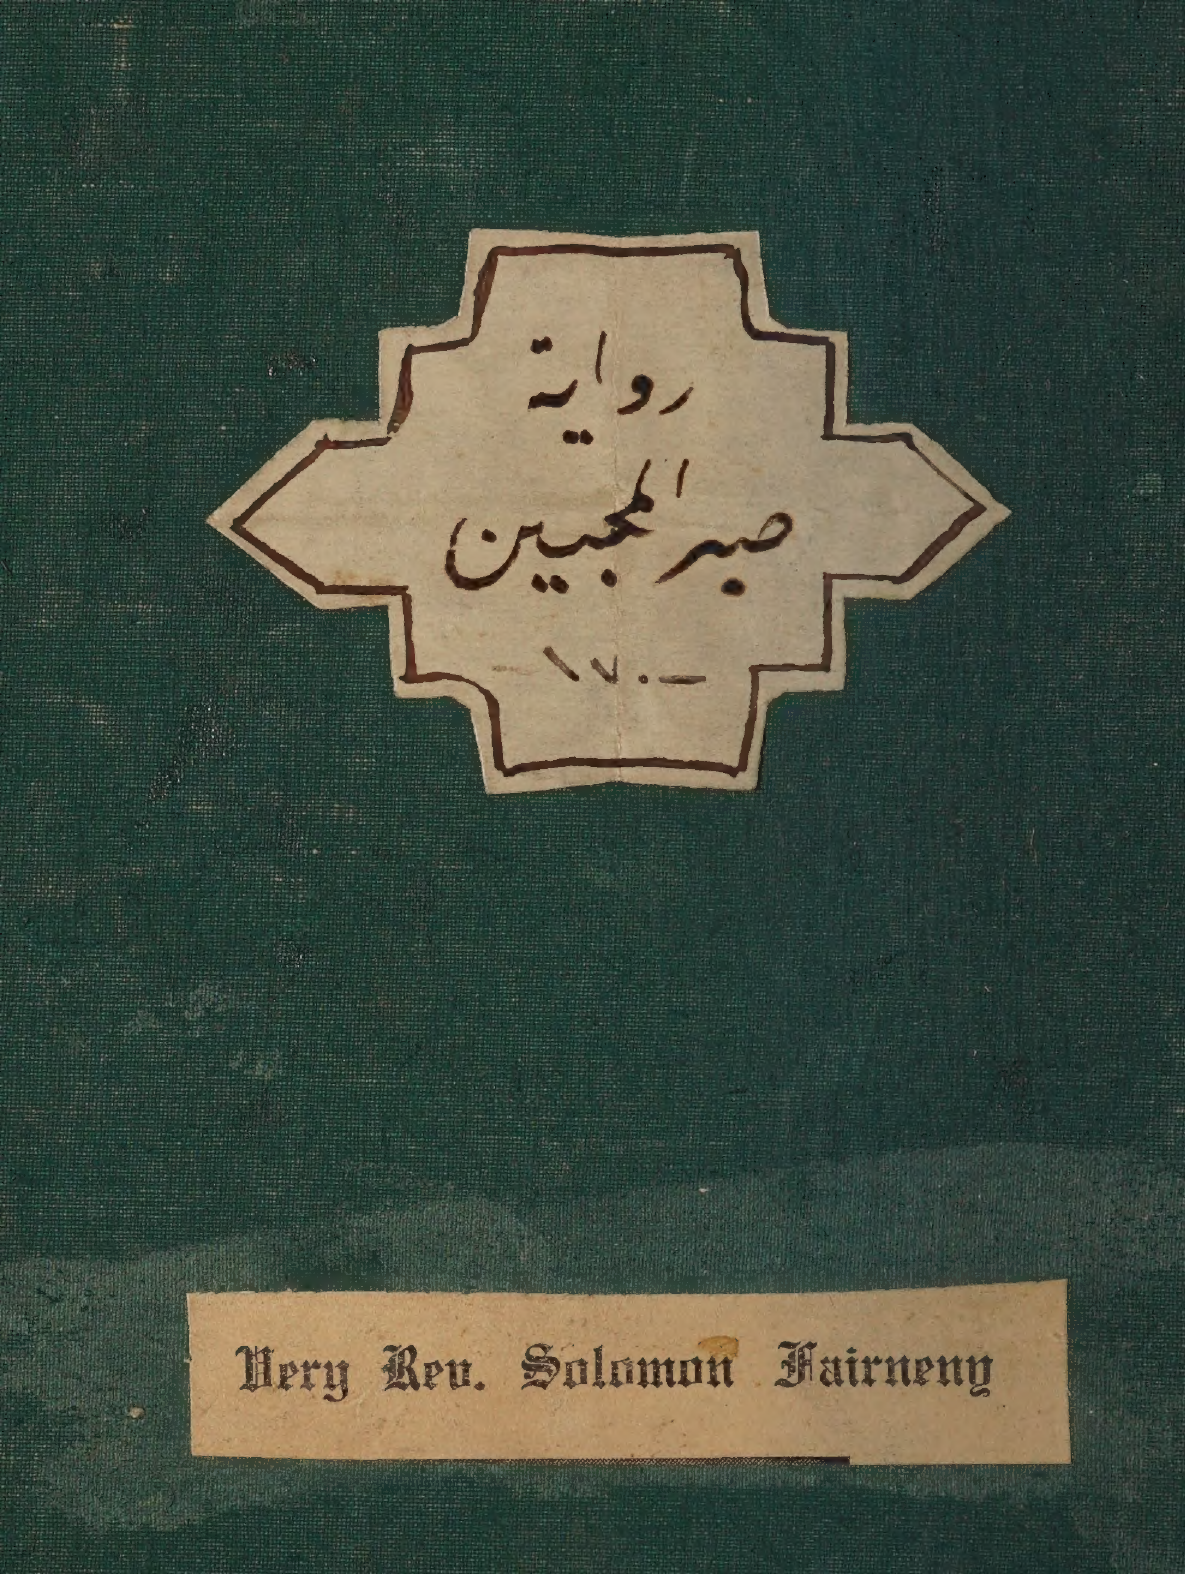 رواية
صبر المحبين
— ١٧٠ —
Very Rev. Solomon Fairneny